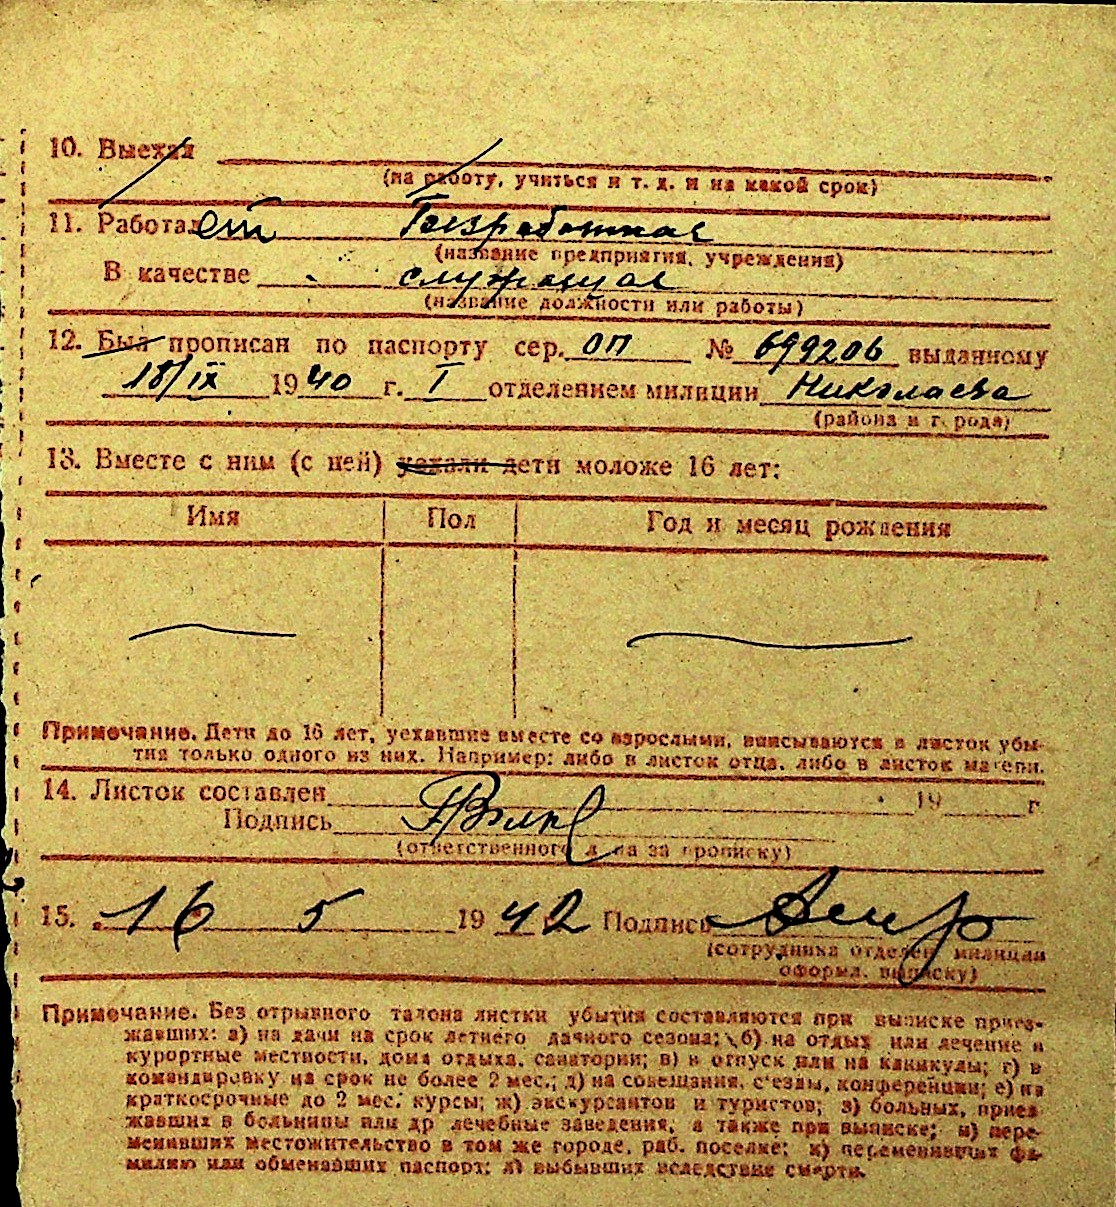 10. Выехал
(на работу, учиться и т. д. и на какой срок)
11. Работает Безработная
(название предприятия, учреждения)
В качестве служащая
(название должности или работы)
12. Был прописан по паспорту сер. ОП № 699206 выданному
18/IX 1940 г. I отделением милиции Николаева
(района и города)
13. Вместе с ним (с ней) уехали дети моложе 16 лет:
Имя Пол Год и месяц рождения
Примечание. Дети до 16 лет, уехавшие вместе со взрослыми, вписываются в листок убы-
тия только одного из них. Например: либо в листок отца, либо в листок матери.
14. Листок составлен 19 г
Подпись
(ответственного лица за прописку)
15. 16 5 1942 Подпись
(сотрудника отделен. милиции
оформл. выписку)
Примечание. Без отрывного талона листки убытия составляются при выписке приез-
жавших: а) на дачи на срок летнего дачного сезона; б) на отдых или лечение в
курортные местности, дома отдыха, санатории; в) в отпуск или на каникулы; г) в
командировку на срок не более 2 мес.; д) на совещания, с'езды, конференции; е) на
краткосрочные до 2 мес. курсы; ж) экскурсантов и туристов; з) больных, приез-
жавших в больницы или др лечебные заведения, а также при выписке; и) пере-
менивших местожительство в том же городе, раб. поселке; к) переменивших фа-
милию или обменявших паспорт; л) выбывших вследствие смерти.